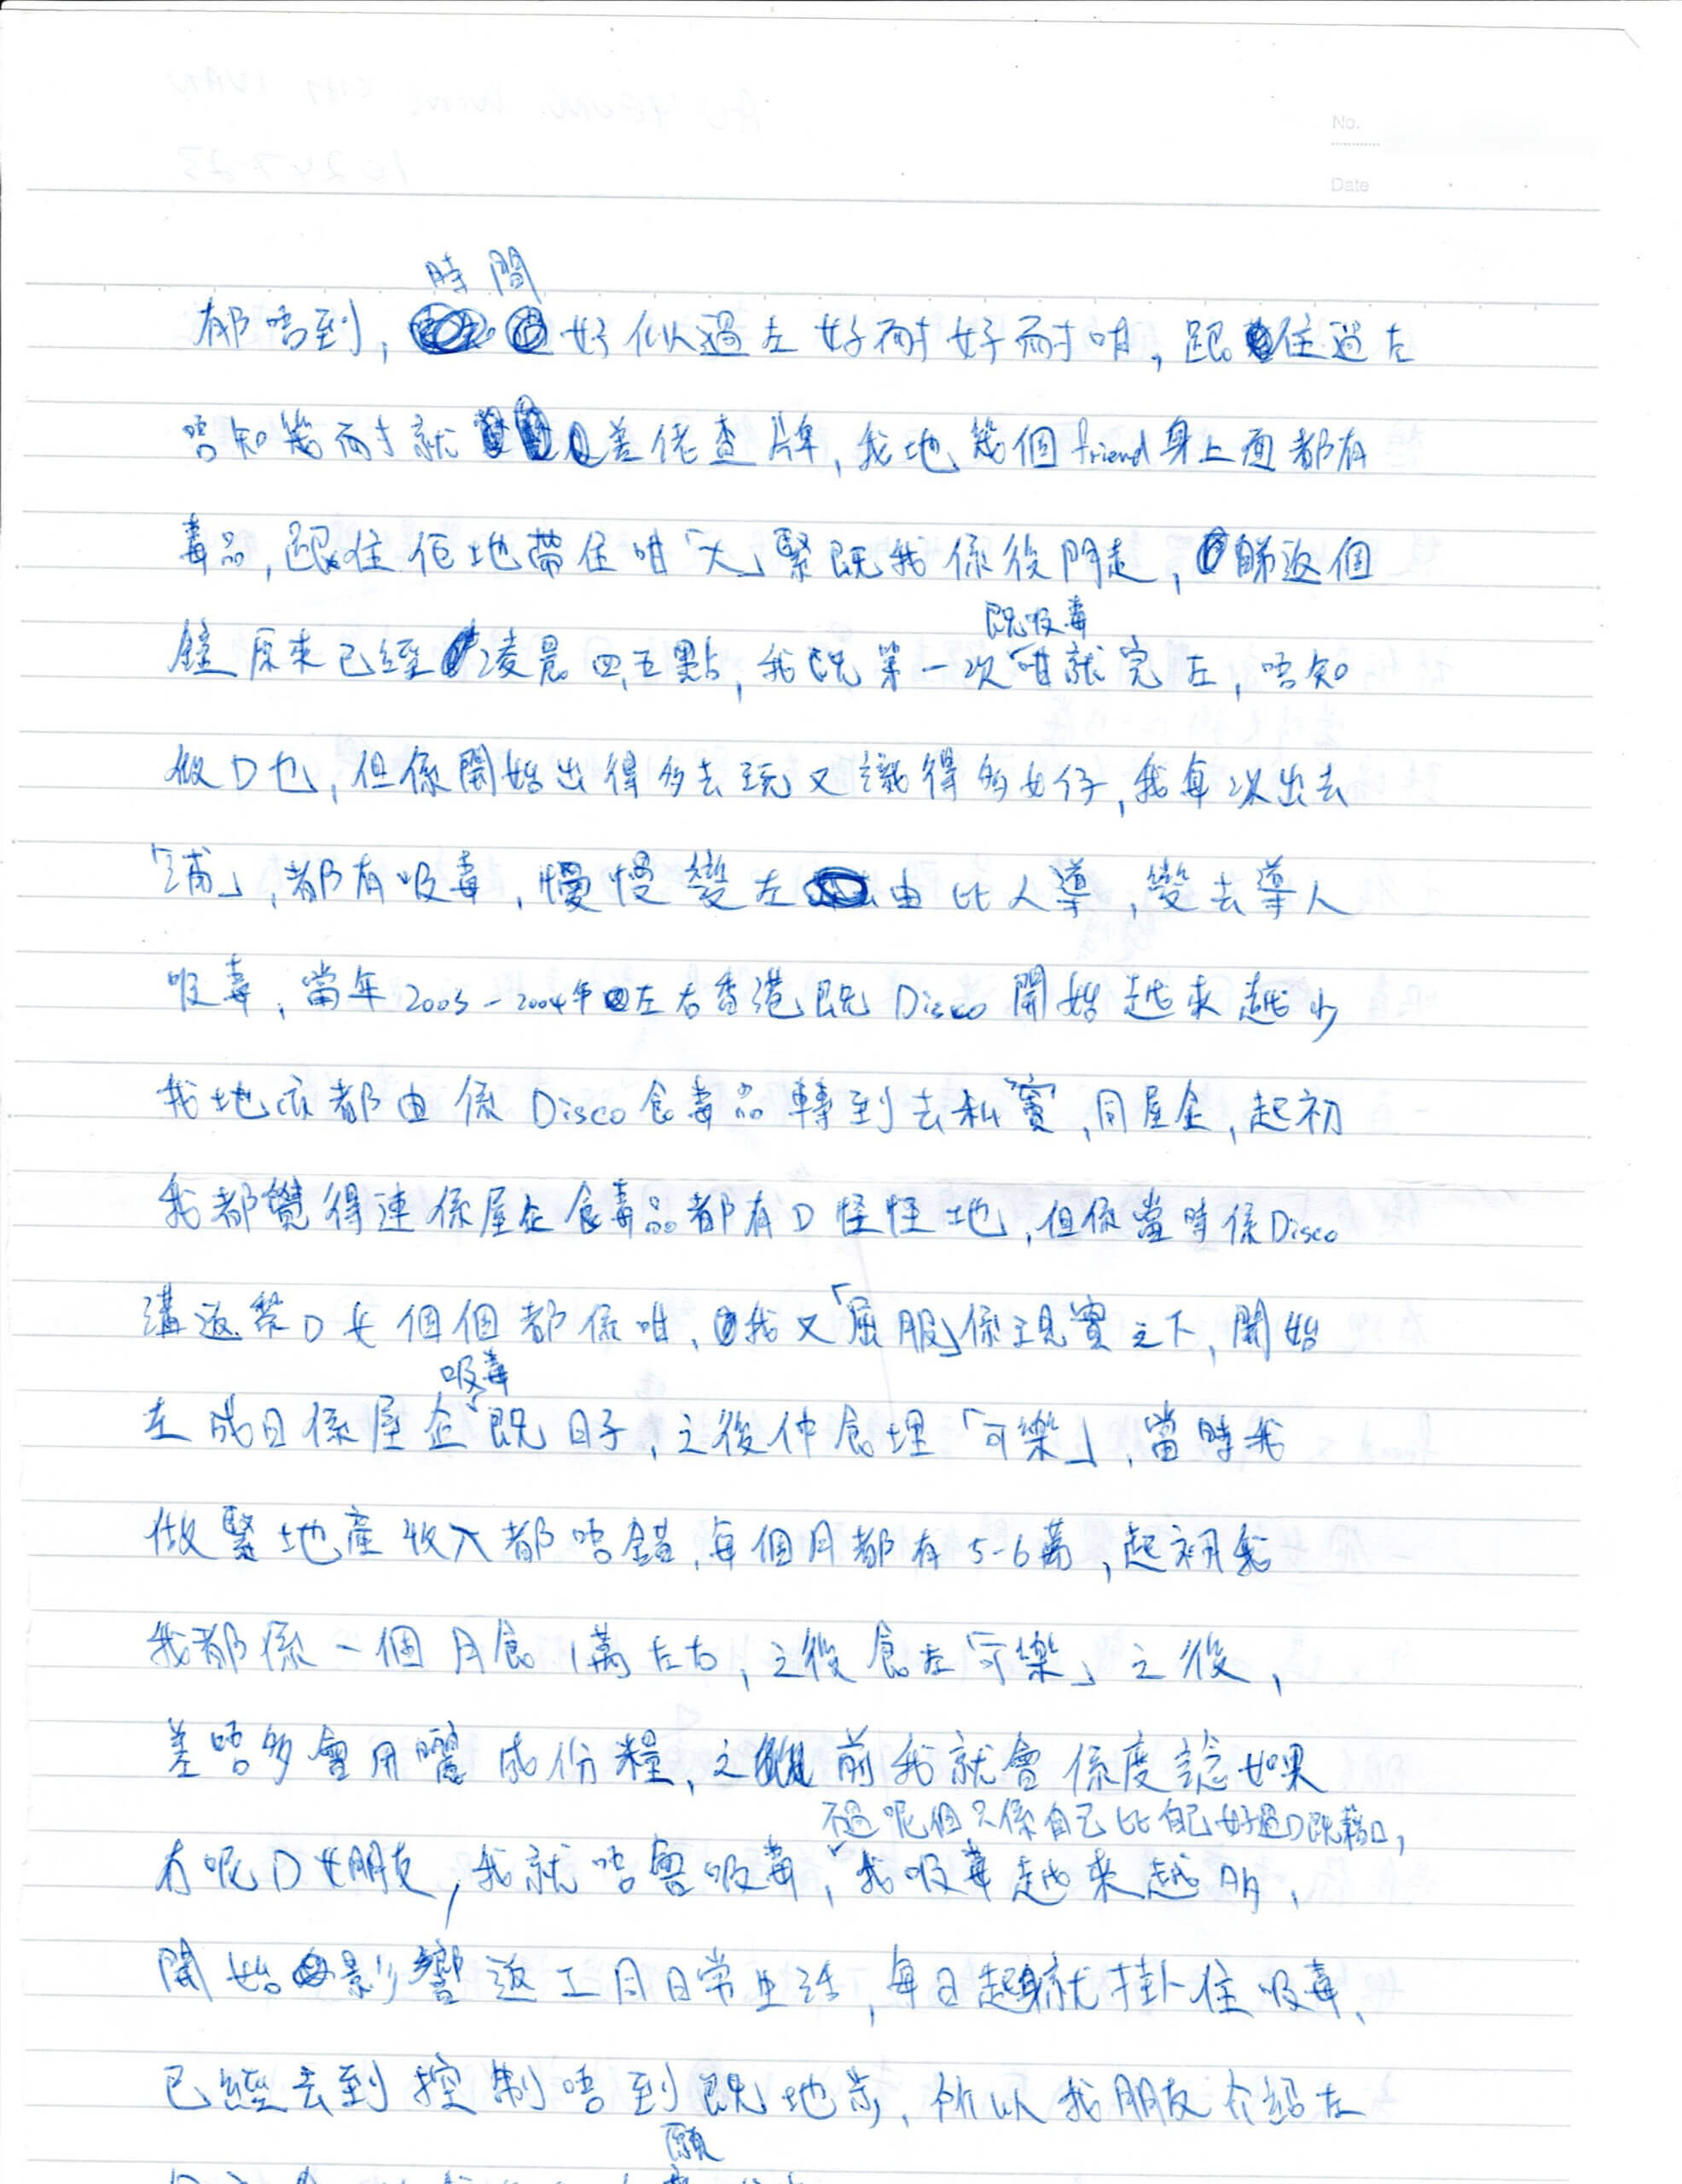 No.
Date
時間
都唔到, 好似過左好耐好耐咁, 跟住過左
唔知幾耐就差佬查牌, 我地幾個friend身上面都有
毒品, 跟住佢地帶住咁「大」緊既我係後門走, 睇返個
既吸毒
鐘原來已經凌晨四五點, 我既第一次咁就完左, 唔知
做D乜, 但係開始出得多去玩又識得多女仔, 我每次出去
「浦」, 都有吸毒, 慢慢變左由比人導, 變去導人
吸毒, 當年2003-2004年左右香港既Disco開始越來越少
我地亦都由係Disco食毒品轉到去私竇, 同屋企, 起初
我都覺得連係屋企食毒品都有D怪怪地, 但係當時係Disco
溝返黎D女個個都係咁, 我又「屈服」係現實之下, 開始
吸毒
左成日係屋企既日子, 之後仲食埋「可樂」, 當時我
做緊地產收入都唔錯, 每個月都有5-6萬, 起初我
我都係一個月食1萬左右, 之後食左「可樂」之後,
差唔多會用曬成份糧, 之前我就會係度諗如果
不過呢個只係自己比自己好過D既藉口,
冇呢D女朋友, 我就唔會吸毒, 我吸毒越來越
開始影響返工同日常生活, 每日起身就掛住吸毒、
已經去到控制唔到既地步, 所以我朋友介紹左
願